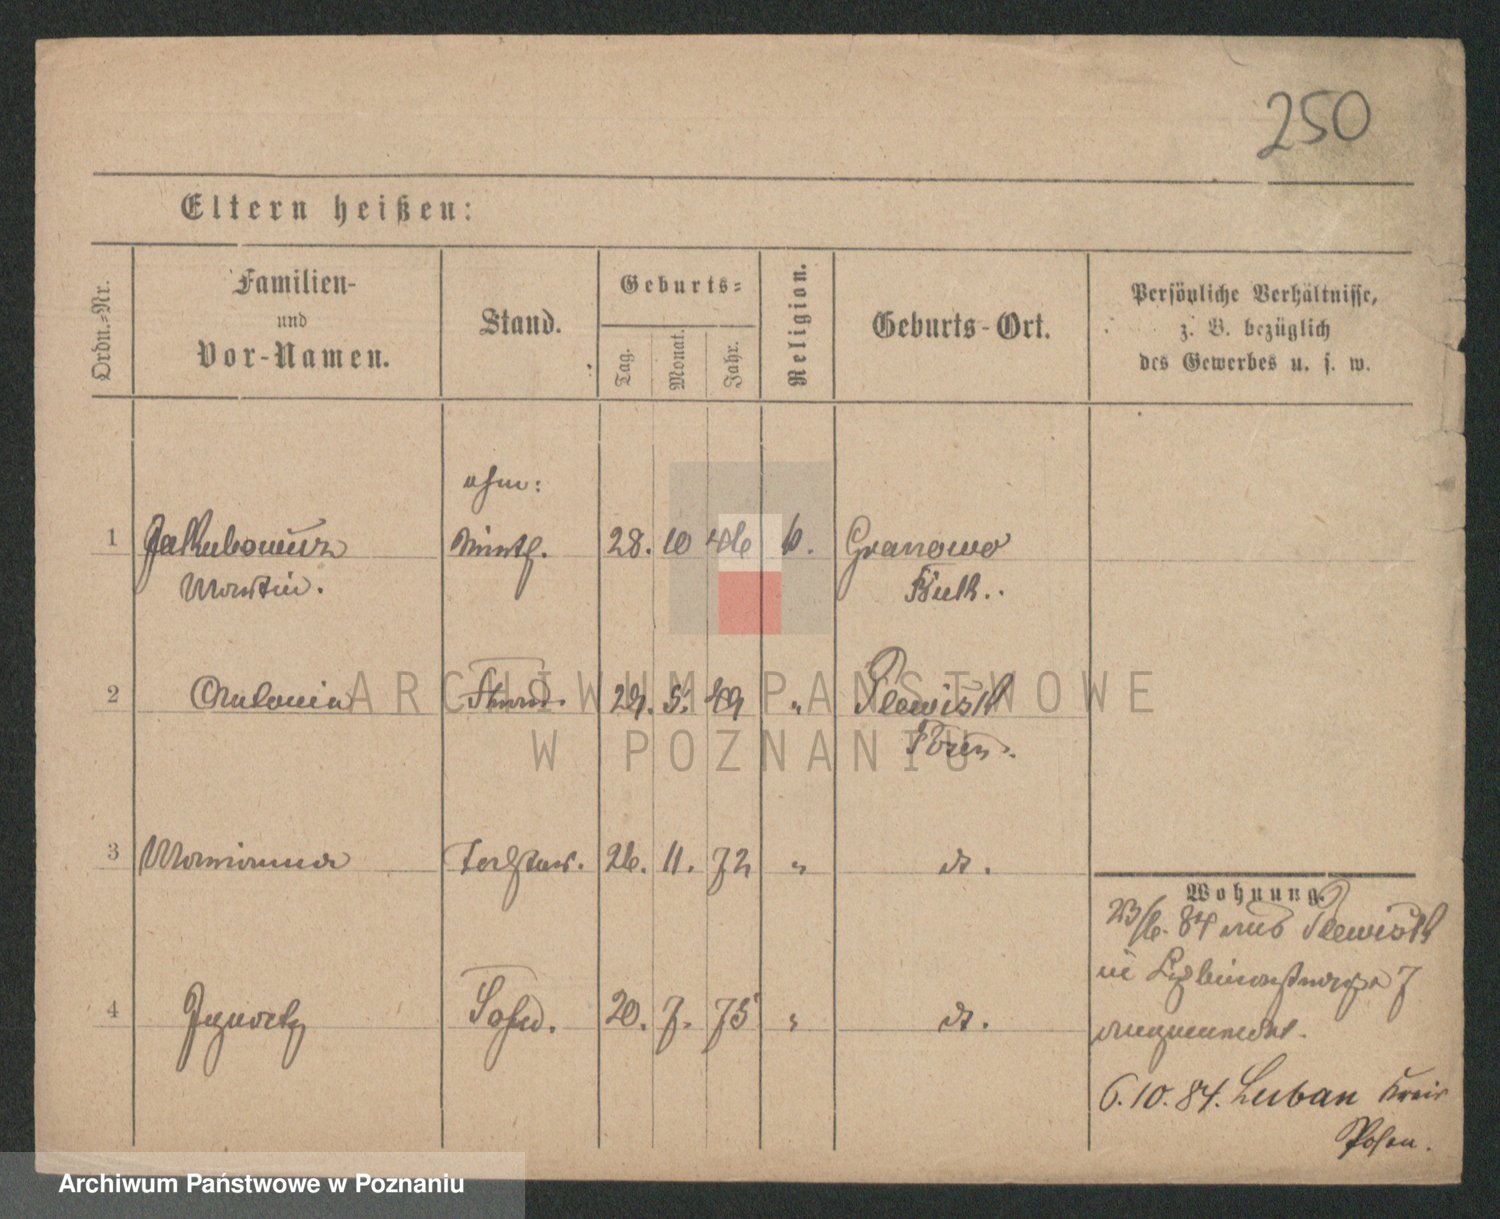 250
Eltern heißen:
Ordn.-Nr.
Familien-
und
Vor-Namen.
Stand.
Geburts-
Tag.
Monat.
Jahr.
Religion.
Geburts-Ort.
Persönliche Verhältnisse,
z. B. bezüglich
des Gewerbes u. s. w.
ehm:
1 Jakubowicz Wirth. 28. 10 46 k. Granowo
Martin. Buk.
2 Antonia 29. 5. 49 " Plewisk
Posen.
3 Marianna Tochter. 26. 11. 72 " dt.
Wohnung.
23/6. 84 aus Plewisk
in 7
4 Ignatz Sohn. 20. 7. 75 " dt.
angemeldet.
6. 10. 84. Luban Kreis
Posen.
ARCHIWUM PAŃSTWOWE
W POZNANIU
Archiwum Państwowe w Poznaniu